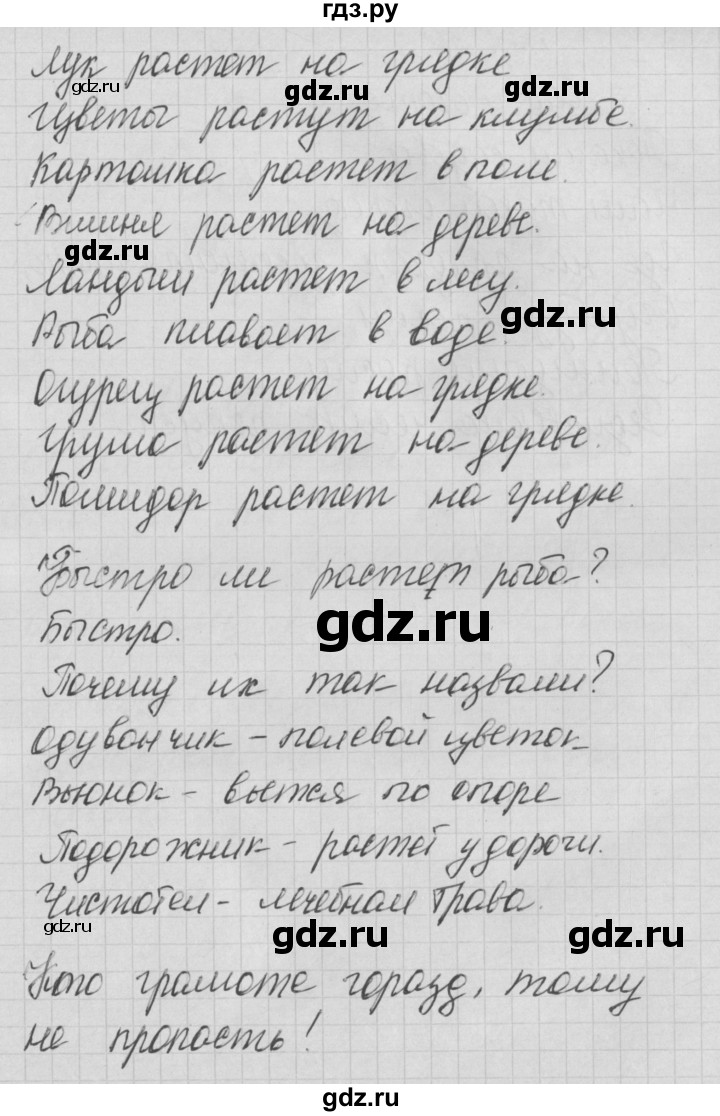 гдз.ру
Лук растет на грядке
gdz.ru gdz.ru gdz.ru
Цветы растут на клумбе.
Картошка растет в поле.
Вишня растет на дереве.
gdz.ru
Ландыш растет в лесу.
gdz.ru
Рыба плавает в воде.
Огурец растет на грядке.
Груша растет на дереве.
Помидор растет на грядке.
Быстро ли растет рыба?
gdz.ru
Быстро.
Почему их так назвали?
Одуванчик – полевой цветок
Вьюнок – вьется по опоре
Подорожник – растет у дороги.
Чистотел – лечебная трава.
gdz.ru gdz.ru gdz.ru
Кто грамоте горазд, тому
не пропасть!
gdz.ru